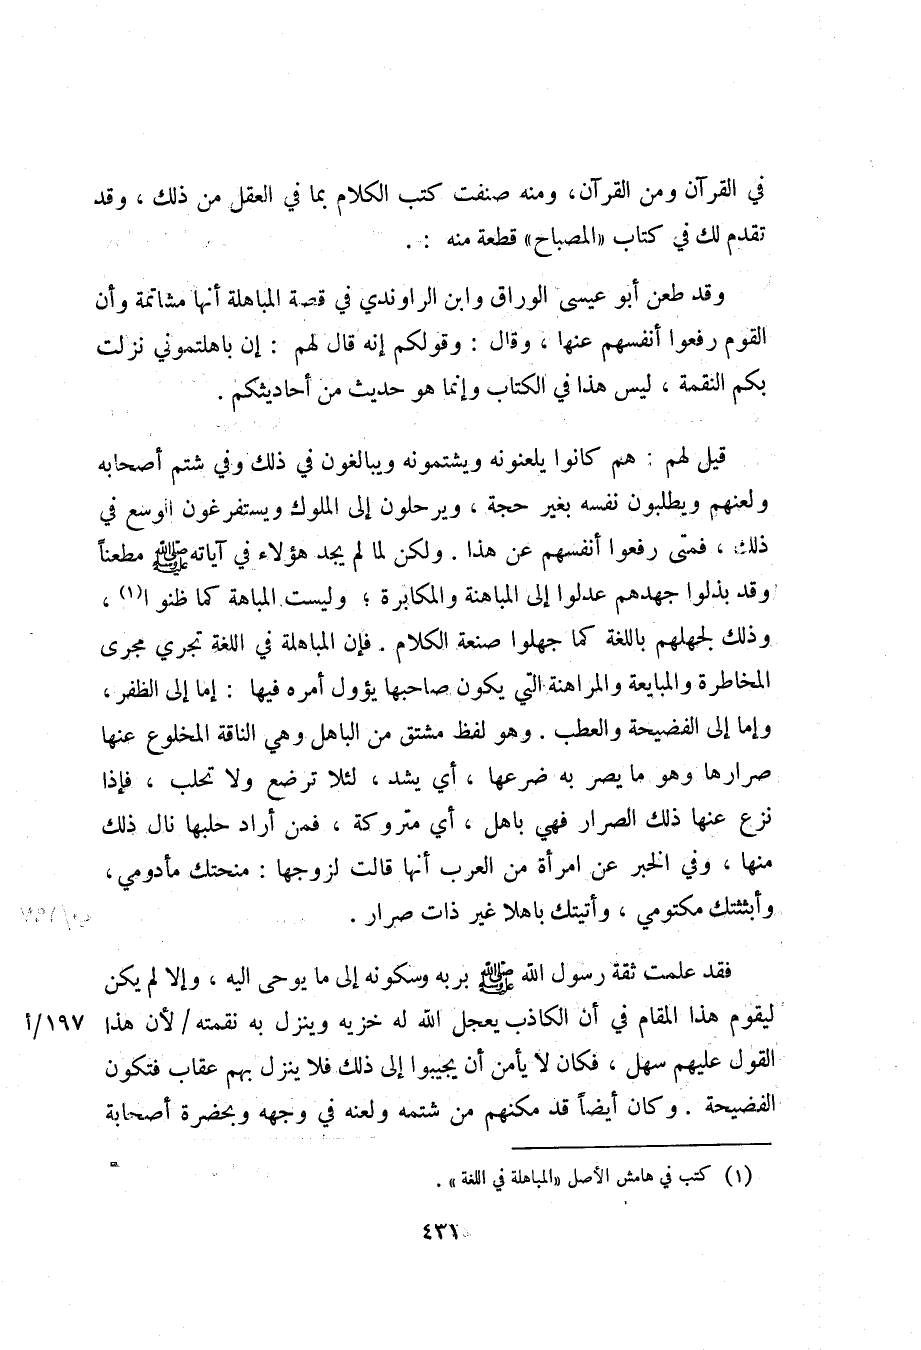 في القرآن ومن القرآن، ومنه صنفت كتب الكلام بما في العقل من ذلك ، وقد
تقدم لك في كتاب «المصباح» قطعة منه : .
وقد طعن أبو عيسى الوراق وابن الراوندي في قصة المباهلة أنها مشاتمة وأن
القوم رفعوا أنفسهم عنها ، وقال : وقولكم إنه قال لهم : إن باهلتموني نزلت
بكم النقمة ، ليس هذا في الكتاب وإنما هو حديث من أحاديثكم .
قيل لهم : هم كانوا يلعنونه ويشتمونه ويبالغون في ذلك وفي شتم أصحابه
ولعنهم ويطلبون نفسه بغير حجة ، ويرحلون إلى الملوك ويستفرغون الوسع في
ذلك ، فمتى رفعوا أنفسهم عن هذا . ولكن لما لم يجد هؤلاء في آياته ﷺ مطعناً
وقد بذلوا جهدهم عدلوا إلى المباهتة والمكابرة ؛ وليست المباهة كما ظنو ا(١) ،
وذلك لجهلهم باللغة كما جهلوا صنعة الكلام . فإن المباهلة في اللغة تجري مجرى
المخاطرة والمبايعة والمراهنة التي يكون صاحبها يؤول أمره فيها : إما إلى الظفر ،
وإما إلى الفضيحة والعطب . وهو لفظ مشتق من الباهل وهي الناقة المخلوع عنها
صرارها وهو ما يصر به ضرعها ، أي يشد ، لئلا ترضع ولا تحلب ، فإذا
نزع عنها ذلك الصرار فهي باهل ، أي متروكة ، فمن أراد حلبها نال ذلك
منها ، وفي الخبر عن امرأة من العرب أنها قالت لزوجها : منحتك مأدومي ،
وأبثثتك مكتومي ، وأتيتك باهلا غير ذات صرار .
فقد علمت ثقة رسول الله ﷺ بربه وسكونه إلى ما يوحى اليه ، وإلا لم يكن
ليقوم هذا المقام في أن الكاذب يعجل الله له خزيه وينزل به نقمته / لأن هذا ١٩٧/أ
القول عليهم سهل ، فكان لا يأمن أن يجيبوا إلى ذلك فلا ينزل بهم عقاب فتكون
الفضيحة . وكان أيضاً قد مكنهم من شتمه ولعنه في وجهه وبحضرة أصحابة
(١) كتب في هامش الأصل «المباهلة في اللغة» .
٤٣١